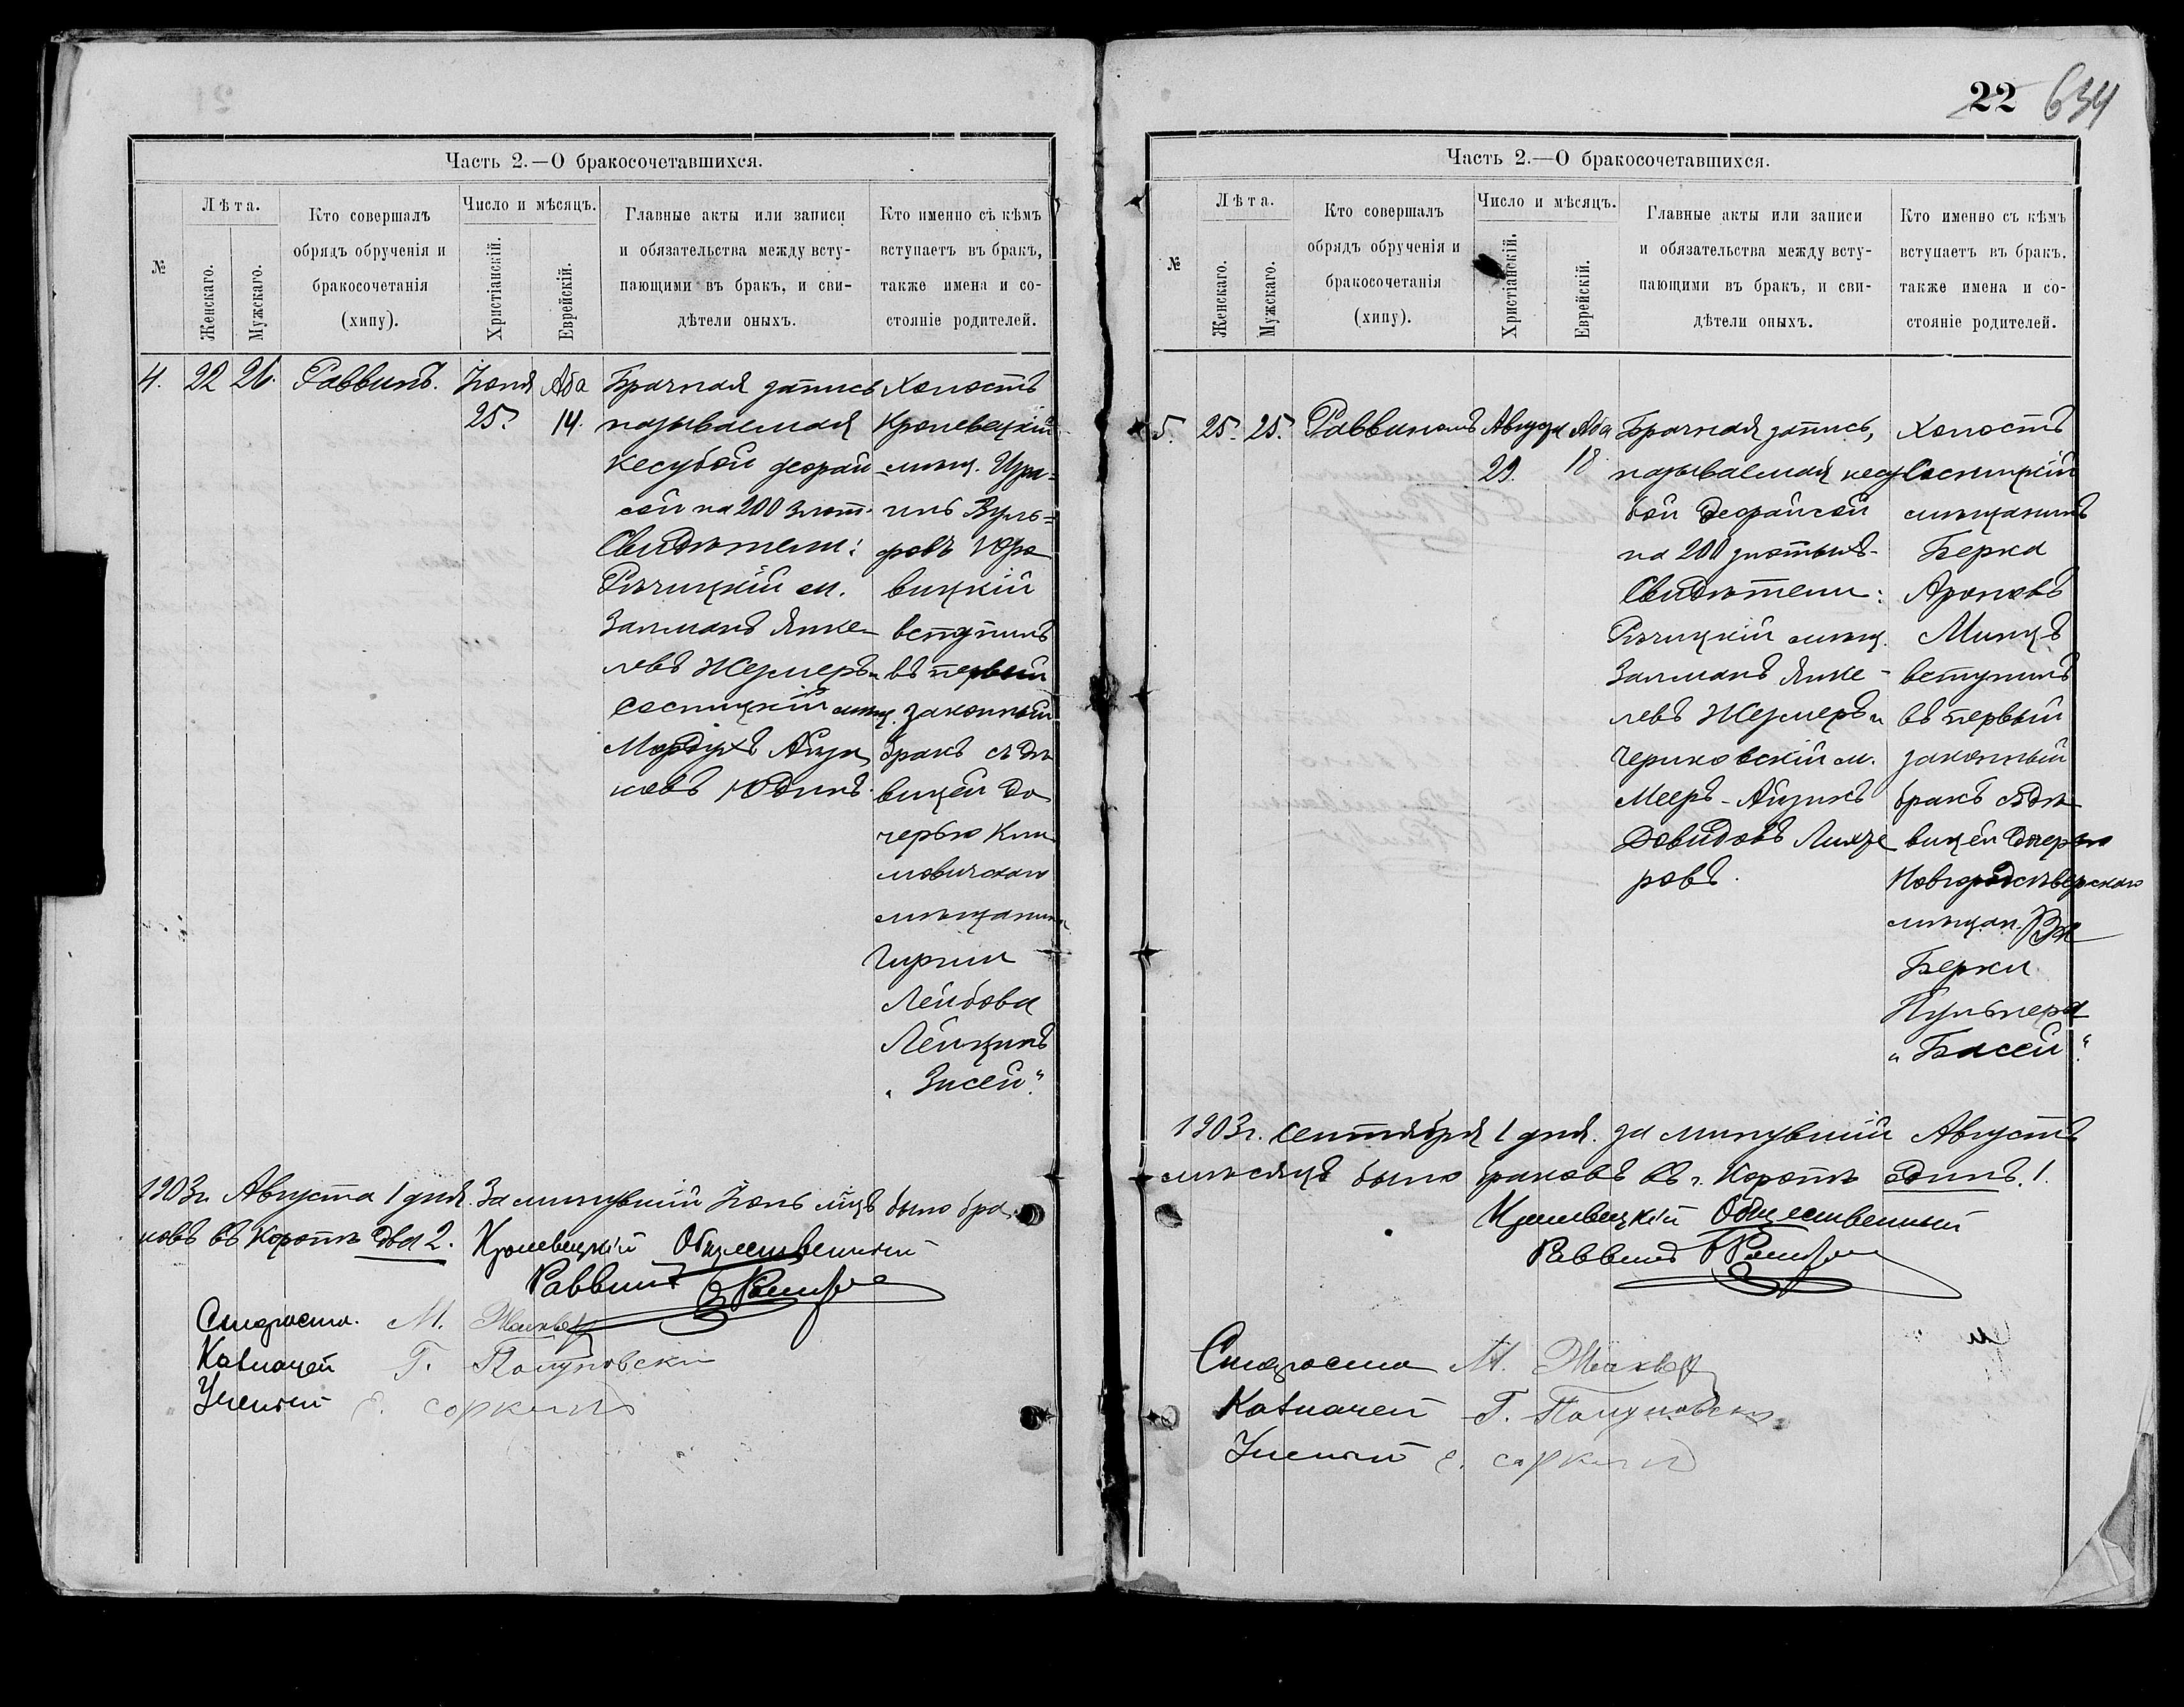 22 634
Часть 2.—О бракосочетавшихся.
№
Лѣта.
Женскаго.
Мужскаго.
Кто совершалъ
обрядъ обрученія и
бракосочетанія
(хипу).
Число и мѣсяцъ.
Христіанскій.
Еврейскій.
Главные акты или записи
и обязательства между всту-
пающими въ бракъ, и сви-
дѣтели оныхъ.
Кто именно съ кѣмъ
вступаетъ въ бракъ,
также имена и со-
стояніе родителей.
4.
22
26.
Раввинъ.
Іюля
25.
Аба
14.
Брачная запись
называемая
кесубой деорай
сой на 200 злот.
Свидѣтели:
Рѣчицкій м.
Залманъ Янке-
левъ Жезмеръ и
Сосницкій мѣщ.
Мордухъ Айзи
ковъ Юдинъ.
Холостъ
Кролевецкій
мѣщ. Изра=
иль Вуль=
фовъ Юро
вицкій
вступилъ
въ первый
законный
бракъ съ дѣ
вицей до
черью Кли
мовичскаго
мѣщанина
Гирши
Лейбова
Лейкинъ
„Зисей".
1903г. Августа 1 дня. За минувшій Іюль мцъ было бра
ковъ въ Коропѣ два 2. Кролевецкій Общественный
Раввинъ
Староста. М.
Казначей Г.
Ученый Е. Соркинъ
Часть 2.—О бракосочетавшихся.
№
Лѣта.
Женскаго.
Мужскаго.
Кто совершалъ
обрядъ обрученія и
бракосочетанія
(хипу).
Число и мѣсяцъ.
Христіанскій.
Еврейскій.
Главные акты или записи
и обязательства между всту-
пающими въ бракъ, и сви-
дѣтели оныхъ.
Кто именно съ кѣмъ
вступаетъ въ бракъ,
также имена и со-
стояніе родителей.
5.
25.
25.
Раввиномъ
Августа
29.
Аба
18
Брачная запись,
называемая кесу
бой деорайсой
на 200 злотыхъ-
Свидѣтели:
Рѣчицкій мѣщ.
Залманъ Янке-
левъ Жезмеръ и
Чериковскій м.
Мееръ-Айзикъ
Довидовъ
ровъ.
Холостъ
Сосницкій
мѣщанинъ
Берка
Ароновъ
Минцъ
вступилъ
въ первый
законный
бракъ съ дѣ
вицей дочерью
Новгородсѣверскаго
мѣщан.
Берки
„Басей".
1903г. Сентября 1 дня. За минувшій Августъ
мѣсяцъ было браковъ въ г. Коропѣ одинъ. 1.
Кролевецкій Общественный
Раввинъ
Староста М.
Казначей Г.
Ученый Е. Соркинъ